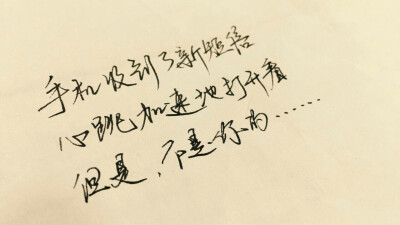 手机收到了新短信
心跳加速地打开看
但是，不是你的……